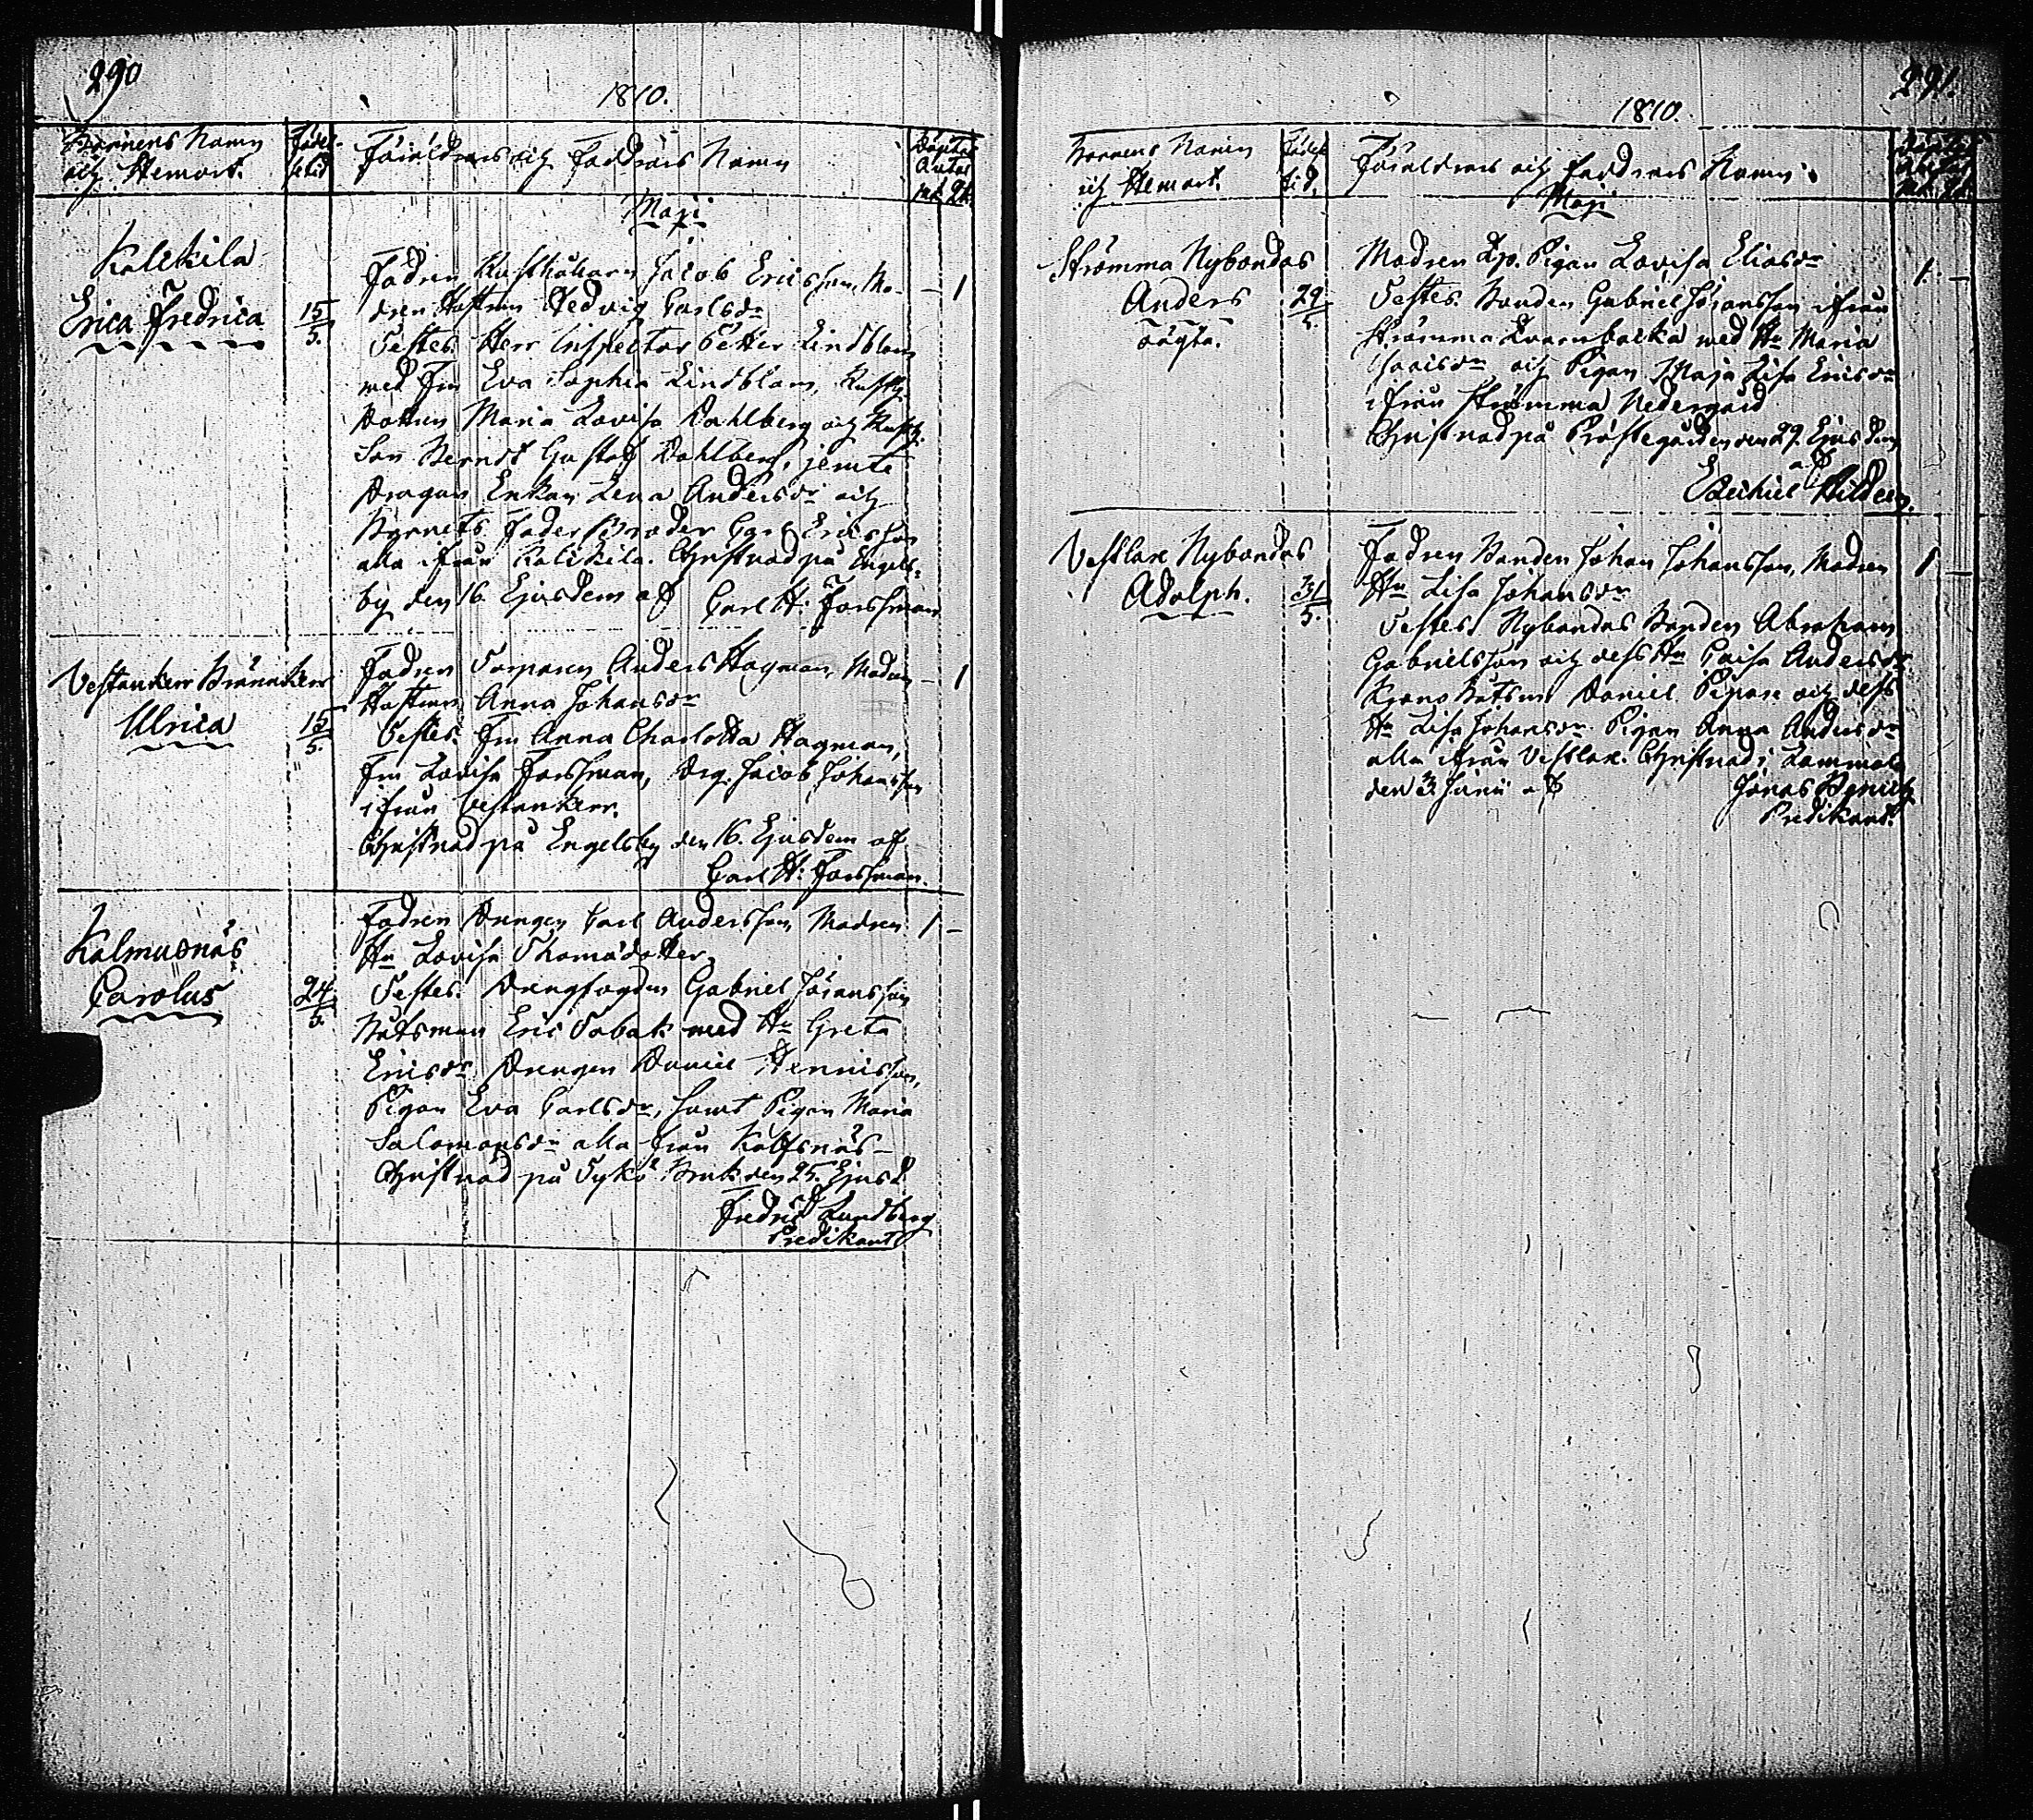 290
1810.
Barnens Namn
och Hemort.
Födel-
setid
Föräldrars och Faddrars Namn
Döptas
Antal
Mk. Qk.
Maji
Kalkila
Erica Fredrica
15/5.
Fadren Rusthållaren Jacob Ericsson, Mo-
dren Hustrun Hedvig Carlsdr
Testes. Herr Inspector Petter Lindblom
med Fru Eva Sophia Lindblom, Rusth.
Dottren Maria Lovisa Dahlberg och Rusth.
Son Berndt Gustaf Dahlberg, jemte
Enkan Lena Andersdr och
Barnets Fader Broder Carl Ericsson
alla ifrån Kalkila. Christnad på Engels-
by den 16 Ejusdem af Carl H: Forssman
1
Vestankerr Brännkerr
Ulrica
15/5.
Fadren Anders Hagman, Modren
Hustrun Anna Johansdr
Testes. Fru Anna Charlotta Hagman,
Fru Lovisa Forssman, Drg. Jacob Johansson
ifrån Vestankerr.
Christnad på Engelsby den 16. Ejusdem af
Carl H: Forssman.
1
Kalmusnäs
Carolus
24/5.
Fadren Drengen Carl Andersson, Modren
Hu Lovisa Thomasdotter
Testes. Drengfogden Gabriel Jöransson
Båtsman Eric Tobak med Hu Greta
Ericsdr Drengen Daniel Hennisson,
Pigan Eva Carlsdr, samt Pigan Maria
Salomonsdr alla från Kalfsnäs
Christnad på Tykö Bruk den 25. Ejusd
Fredric Lundberg
Predikant
1
291.
1810.
Barnens Namn
och Hemort.
Födel-
tid.
Föräldrars och Faddrars Namn
Maji
Strömma Nybondas
Anders
oägta.
29/5.
Modren Lösp. Pigan Lovisa Eliasdr
Testes. Bonden Gabriel Jöransson ifrån
Strömma Kvarnbacka med Hu Maria
Isacsdr och Pigan Maja Lisa Ericsdr
ifrån Strömma Nedergård
Christnad på Prästegården den 29. Ejusdem
af
Ezechiel Hildeen.
1
Vestlax Nybondas
Adolph.
31/5.
Fadren Bonden Johan Johansson, Modren
Hu Lisa Johansdr
Testes. Nybondas Bonden Abraham
Gabrielsson och dess Hu Caisa Andersdr
Krono Båtsm Daniel Pipare och dess
Hu Lisa Johansdr Pigan Anna Andersdr
alla ifrån Vestlax. Christnad i Lammala
den 3. Junii af Jonas
Predikant.
1